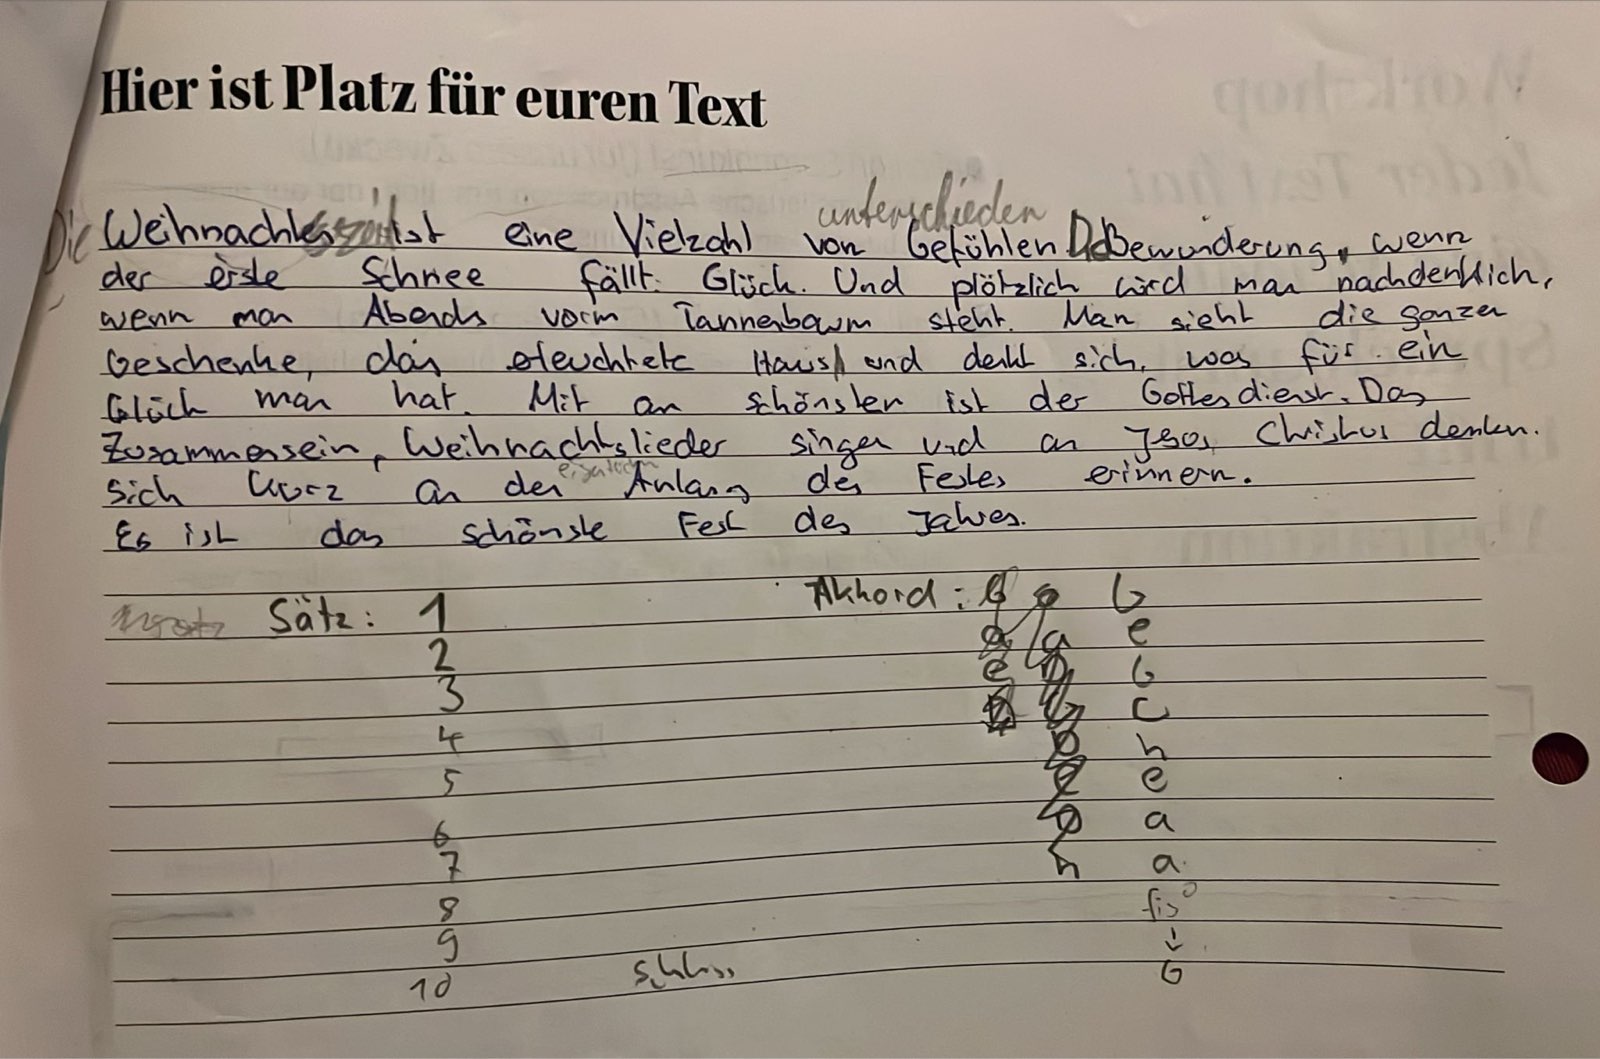 Hier ist Platz für euren Text
unterschieden
Die Weihnachtszeit ist eine Vielzahl von Gefühlen Bewunderung, wenn
der erste Schnee fällt. Glück. Und plötzlich wird man nachdenklich,
wenn man Abends vorm Tannenbaum steht. Man sieht die ganzen
Geschenke, das erleuchtete Haus und denkt sich, was für ein
Glück man hat. Mit am schönsten ist der Gottesdienst. Das
Zusammensein, Weihnachtslieder singen und an Jesus Christus denken.
eigentlichen
Sich kurz an den Anlass des Festes erinnern.
Es ist das schönste Fest des Jahres.
Sätz: 1 Akkord: G
2 a e
3 e G
C
4 h
5 e
6 a
7 h a
8 fis°
9 ↓
10 Schluss G